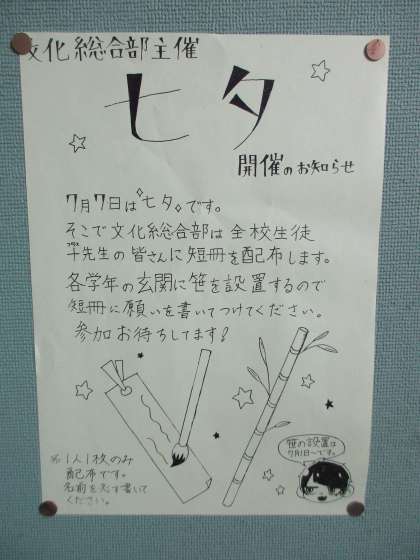 文化総合部主催
七夕
開催のお知らせ
7月7日は〝七夕〟です。
そこで文化総合部は全校生徒
プラス
+先生の皆さんに短冊を配布します。
各学年の玄関に笹を設置するので
短冊に願いを書いてつけてください。
参加お待ちしてます!
※1人1枚のみ
配布です。
名前を必ず書いて
ください。
笹の設置は
7月1日〜です。